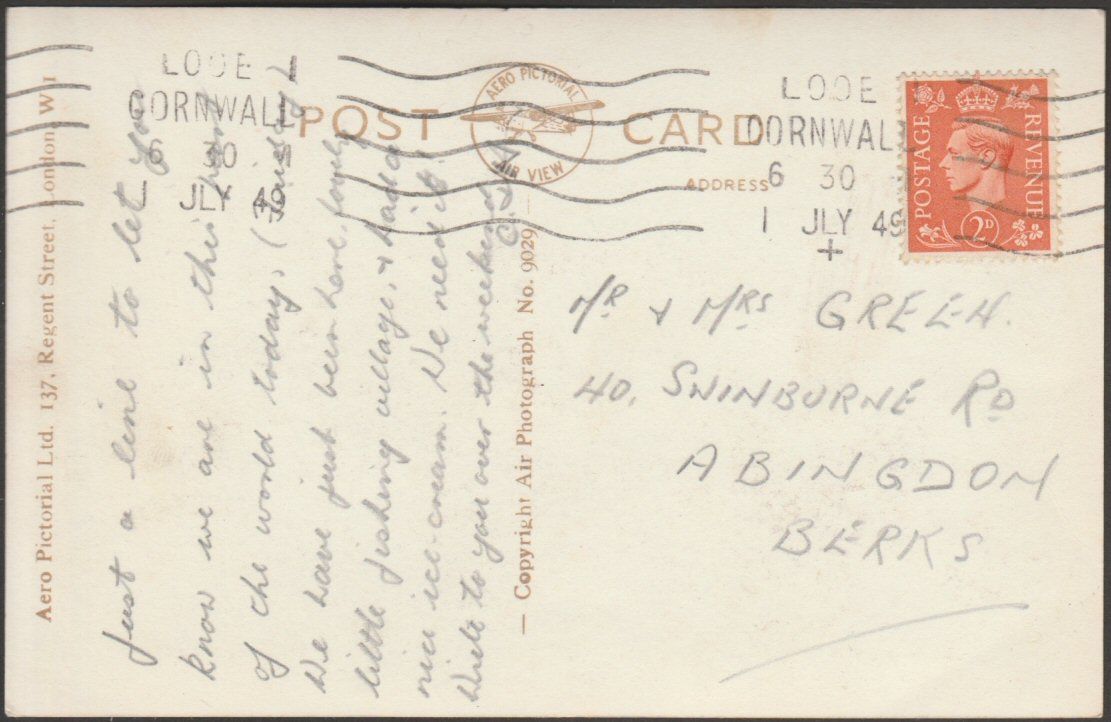 LOOE
CORNWALL
6 30
1 JLY 49
POST CARD
AERO PICTORIAL
AIR VIEW
ADDRESS
LOOE
CORNWALL
6 30
1 JLY 49
+
POSTAGE REVENUE
2D
Aero Pictorial Ltd. 137, Regent Street, London, W 1
Just a line to let you
know we are in this
of the world today, (Friday)
We have just been here, lovely
little fishing village, & had a
nice ice-cream. We need it!
Write to you over the weekend,
— Copyright Air Photograph No. 9029 —
MR & MRS GREEN.
40, SWINBURNE RD
ABINGDON
BERKS